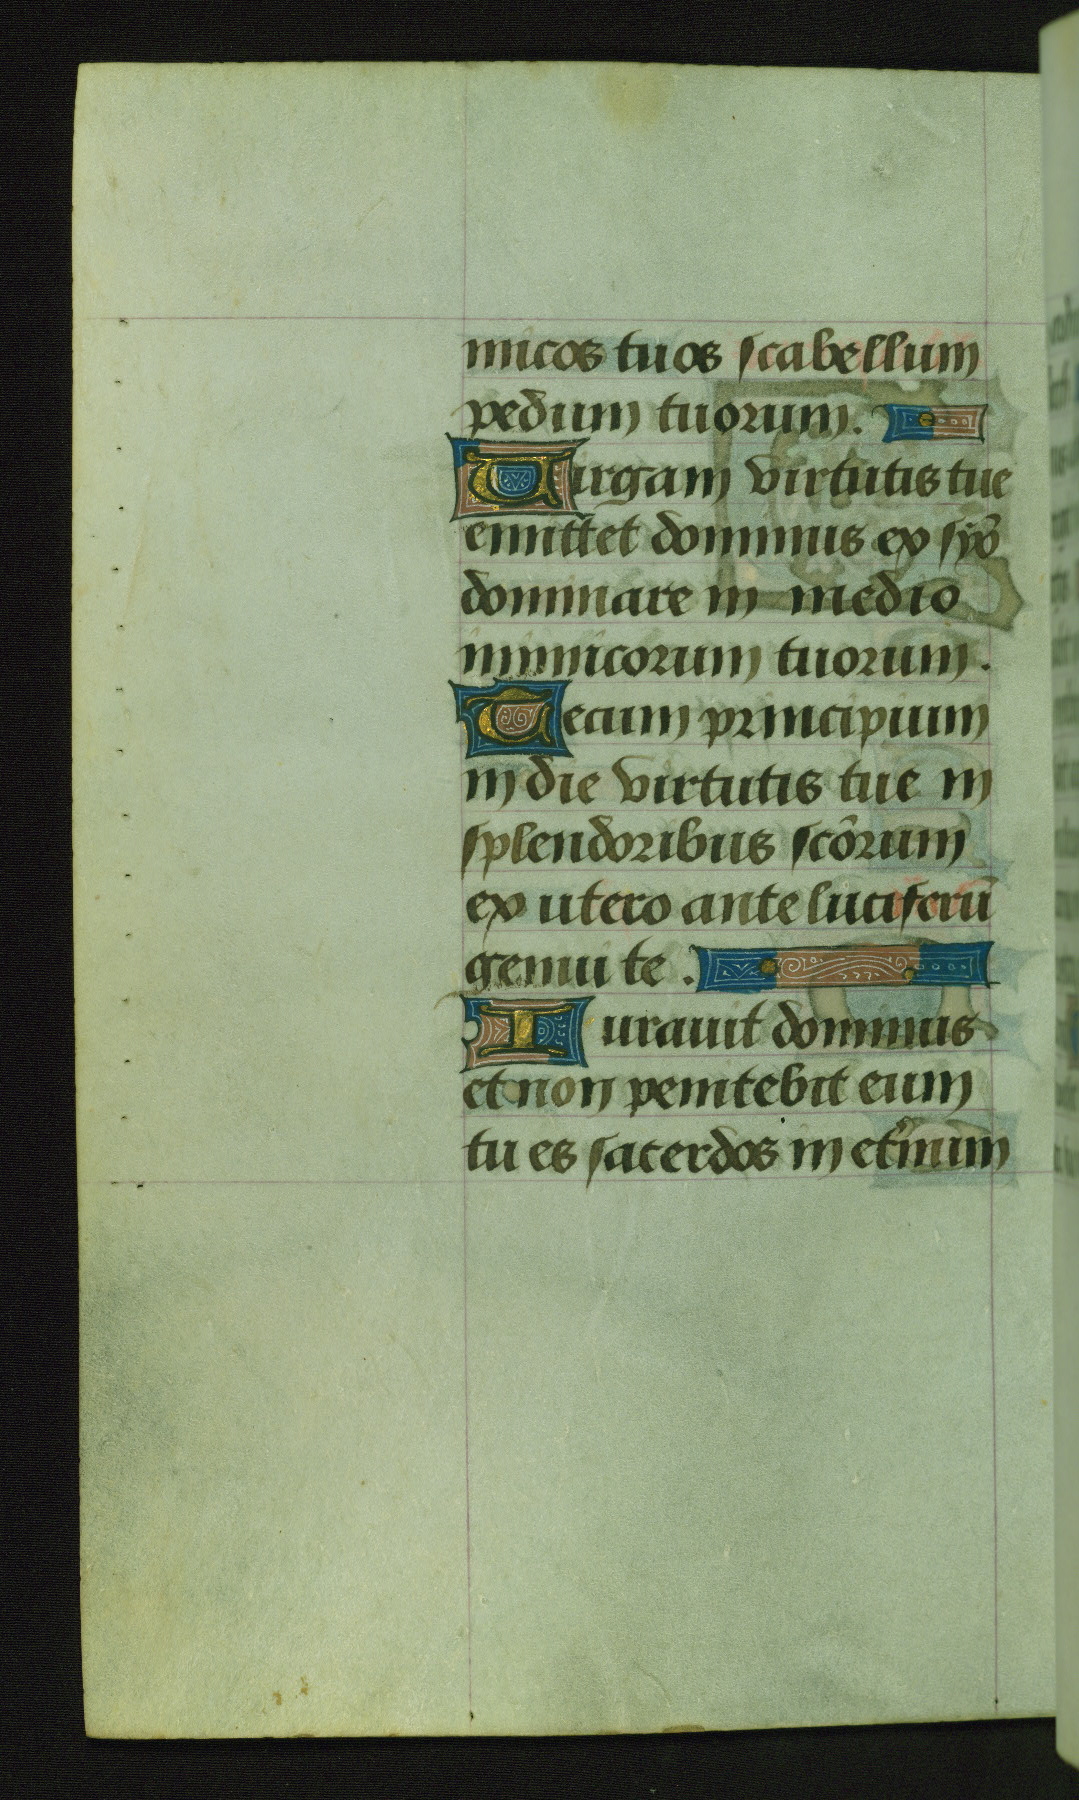 micos tuos scabellum
pedum tuorum.
Uirgam virtutis tue
emittet dominus ex syõ
dominare in medio
inimicorum tuorum.
Tecum principium
in die virtutis tue in
splendoribus scôrum
ex utero ante luciferū
genui te.
Iurauit dominus
et non penitebit eum
tu es sacerdos in et̃num